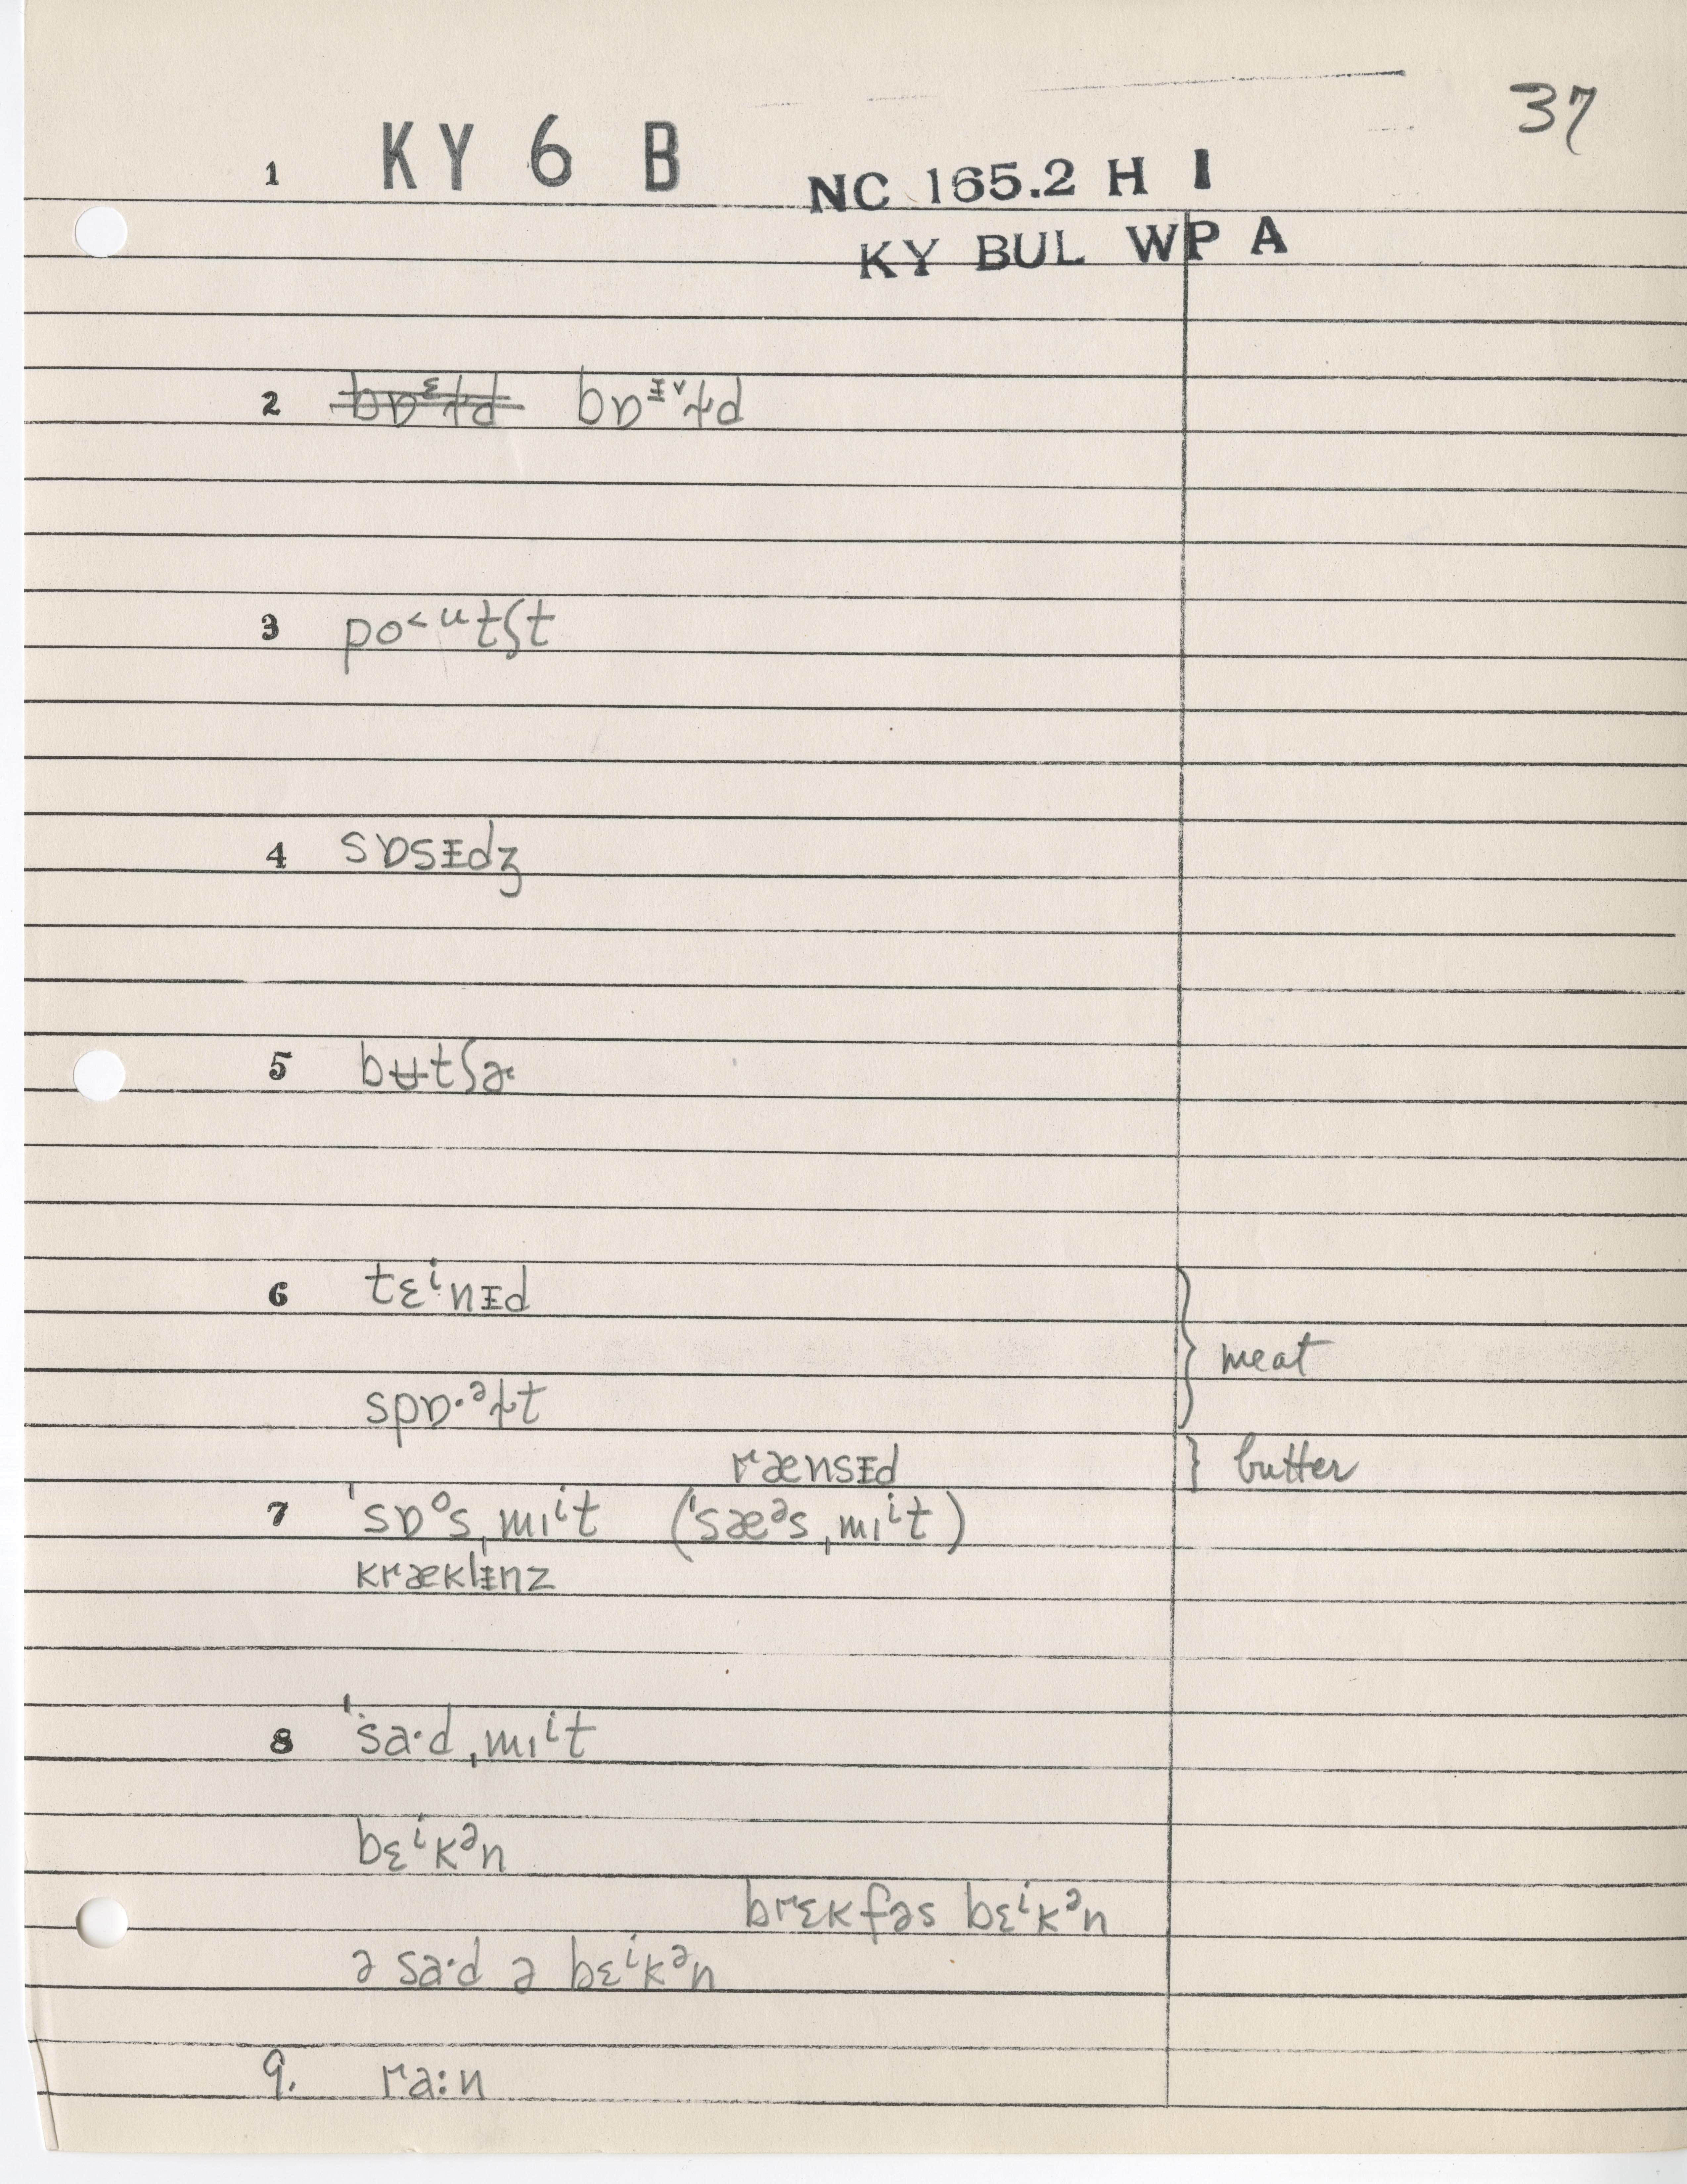 37
1 KY 6 B NC 165.2 H I
KY BUL WP A
2 bɒᵋɫd bɒᵻ˅ɫd
3 po˂ᵘtʃt
4 sɒsᵻdʒ
5 bʉtʃɚ
6 tɛⁱnᵻd
meat
spɒ·ᵊɫt
rænsᵻd butter
7 ˈsɒᵒsˌmɪⁱt (ˈsæᵊsˌmɪⁱt)
kræklᵻnz
8 ˈsa·dˌmɪⁱt
bɛⁱkᵊn
brɛkfəs bɛⁱkᵊn
ə sa·d ə bɛⁱkᵊn
9. ra:n